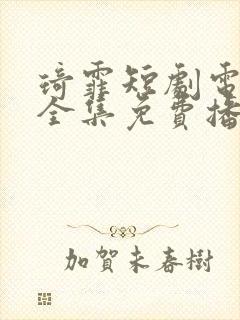 琦霏短劇電
全集免費播
加賀未春樹